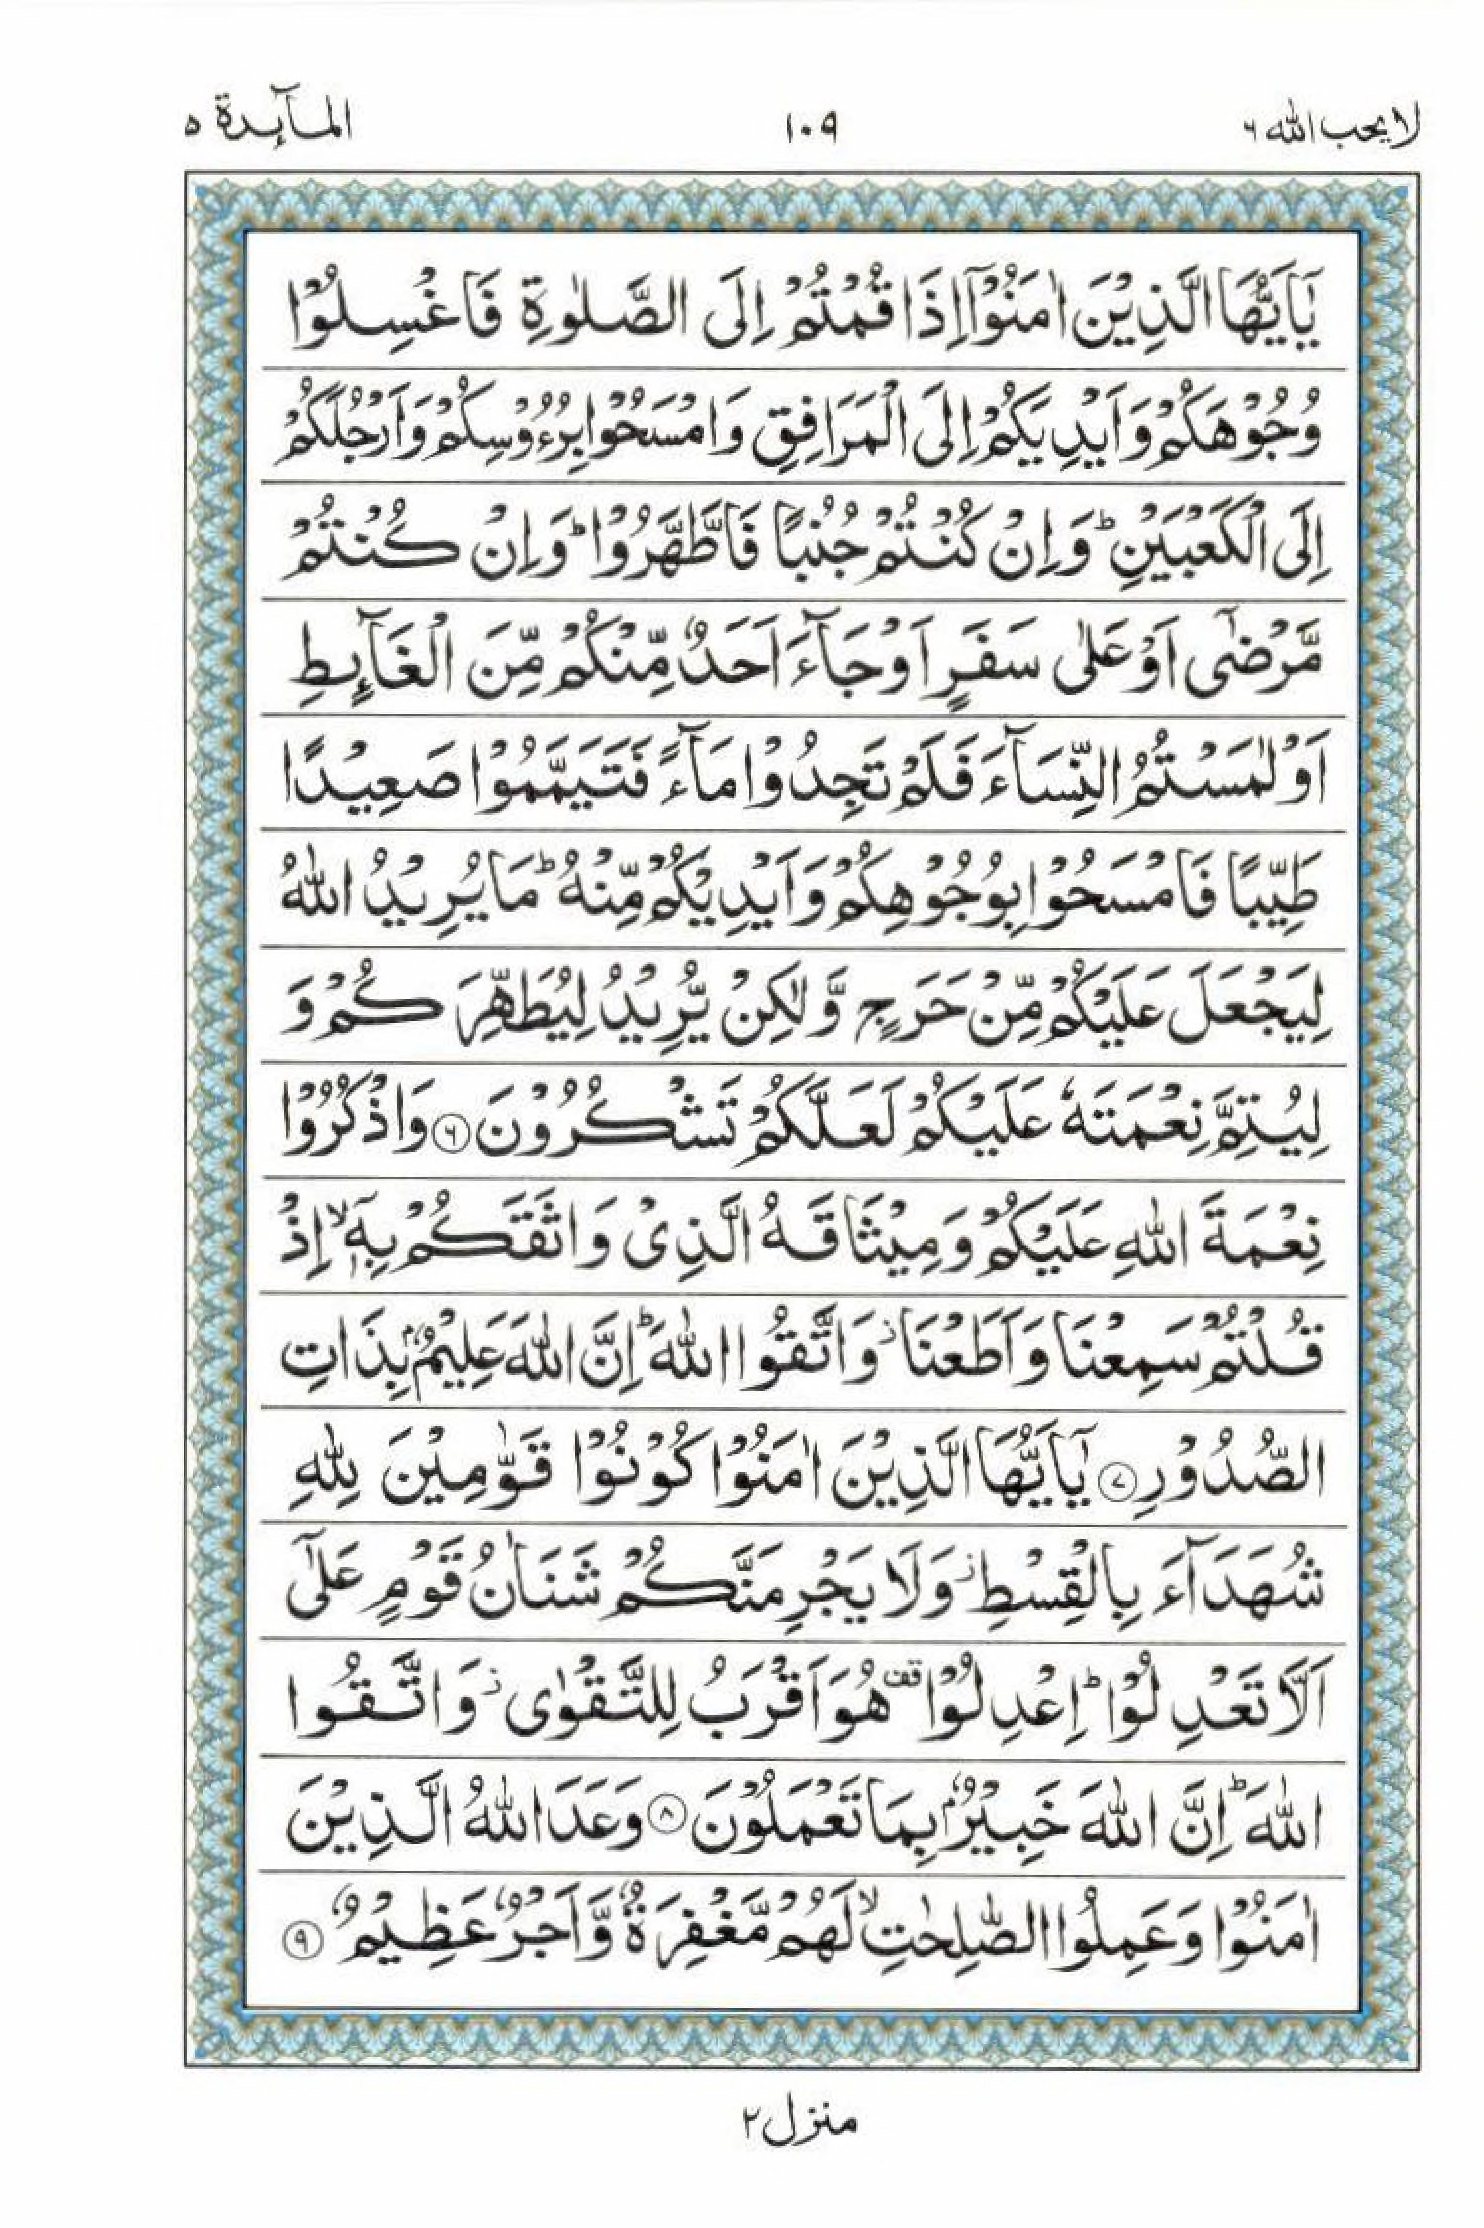 لا يحب الله ٦
١٠٩
المآىِٕدة ٥
يٰۤاَيُّهَا الَّذِيْنَ اٰمَنُوْۤا اِذَا قُمْتُمْ اِلَى الصَّلٰوةِ فَاغْسِلُوْا
وُجُوْهَكُمْ وَاَيْدِيَكُمْ اِلَى الْمَرَافِقِ وَامْسَحُوْا بِرُءُوْسِكُمْ وَاَرْجُلَكُمْ
اِلَى الْكَعْبَيْنِ ؕ وَاِنْ كُنْتُمْ جُنُبًا فَاطَّهَّرُوْا ؕ وَاِنْ كُنْتُمْ
مَّرْضٰۤى اَوْ عَلٰى سَفَرٍ اَوْ جَآءَ اَحَدٌ مِّنْكُمْ مِّنَ الْغَآىِٕطِ
اَوْ لٰمَسْتُمُ النِّسَآءَ فَلَمْ تَجِدُوْا مَآءً فَتَيَمَّمُوْا صَعِيْدًا
طَيِّبًا فَامْسَحُوْا بِوُجُوْهِكُمْ وَاَيْدِيْكُمْ مِّنْهُ ؕ مَا يُرِيْدُ اللّٰهُ
لِيَجْعَلَ عَلَيْكُمْ مِّنْ حَرَجٍ وَّلٰكِنْ يُّرِيْدُ لِيُطَهِّرَكُمْ وَ
لِيُتِمَّ نِعْمَتَهٗ عَلَيْكُمْ لَعَلَّكُمْ تَشْكُرُوْنَ ۝٦ وَاذْكُرُوْا
نِعْمَةَ اللّٰهِ عَلَيْكُمْ وَمِيْثَاقَهُ الَّذِيْ وَاثَقَكُمْ بِهٖۤ ۙ اِذْ
قُلْتُمْ سَمِعْنَا وَاَطَعْنَا ؗ وَاتَّقُوا اللّٰهَ ؕ اِنَّ اللّٰهَ عَلِيْمٌۢ بِذَاتِ
الصُّدُوْرِ ۝٧ يٰۤاَيُّهَا الَّذِيْنَ اٰمَنُوْا كُوْنُوْا قَوّٰمِيْنَ لِلّٰهِ
شُهَدَآءَ بِالْقِسْطِ ؗ وَلَا يَجْرِمَنَّكُمْ شَنَاٰنُ قَوْمٍ عَلٰۤى
اَلَّا تَعْدِلُوْا ؕ اِعْدِلُوْا ۫ هُوَ اَقْرَبُ لِلتَّقْوٰى ؗ وَاتَّقُوا
اللّٰهَ ؕ اِنَّ اللّٰهَ خَبِيْرٌۢ بِمَا تَعْمَلُوْنَ ۝٨ وَعَدَ اللّٰهُ الَّذِيْنَ
اٰمَنُوْا وَعَمِلُوا الصّٰلِحٰتِ ۙ لَهُمْ مَّغْفِرَةٌ وَّاَجْرٌ عَظِيْمٌ ۝٩
منزل ٢